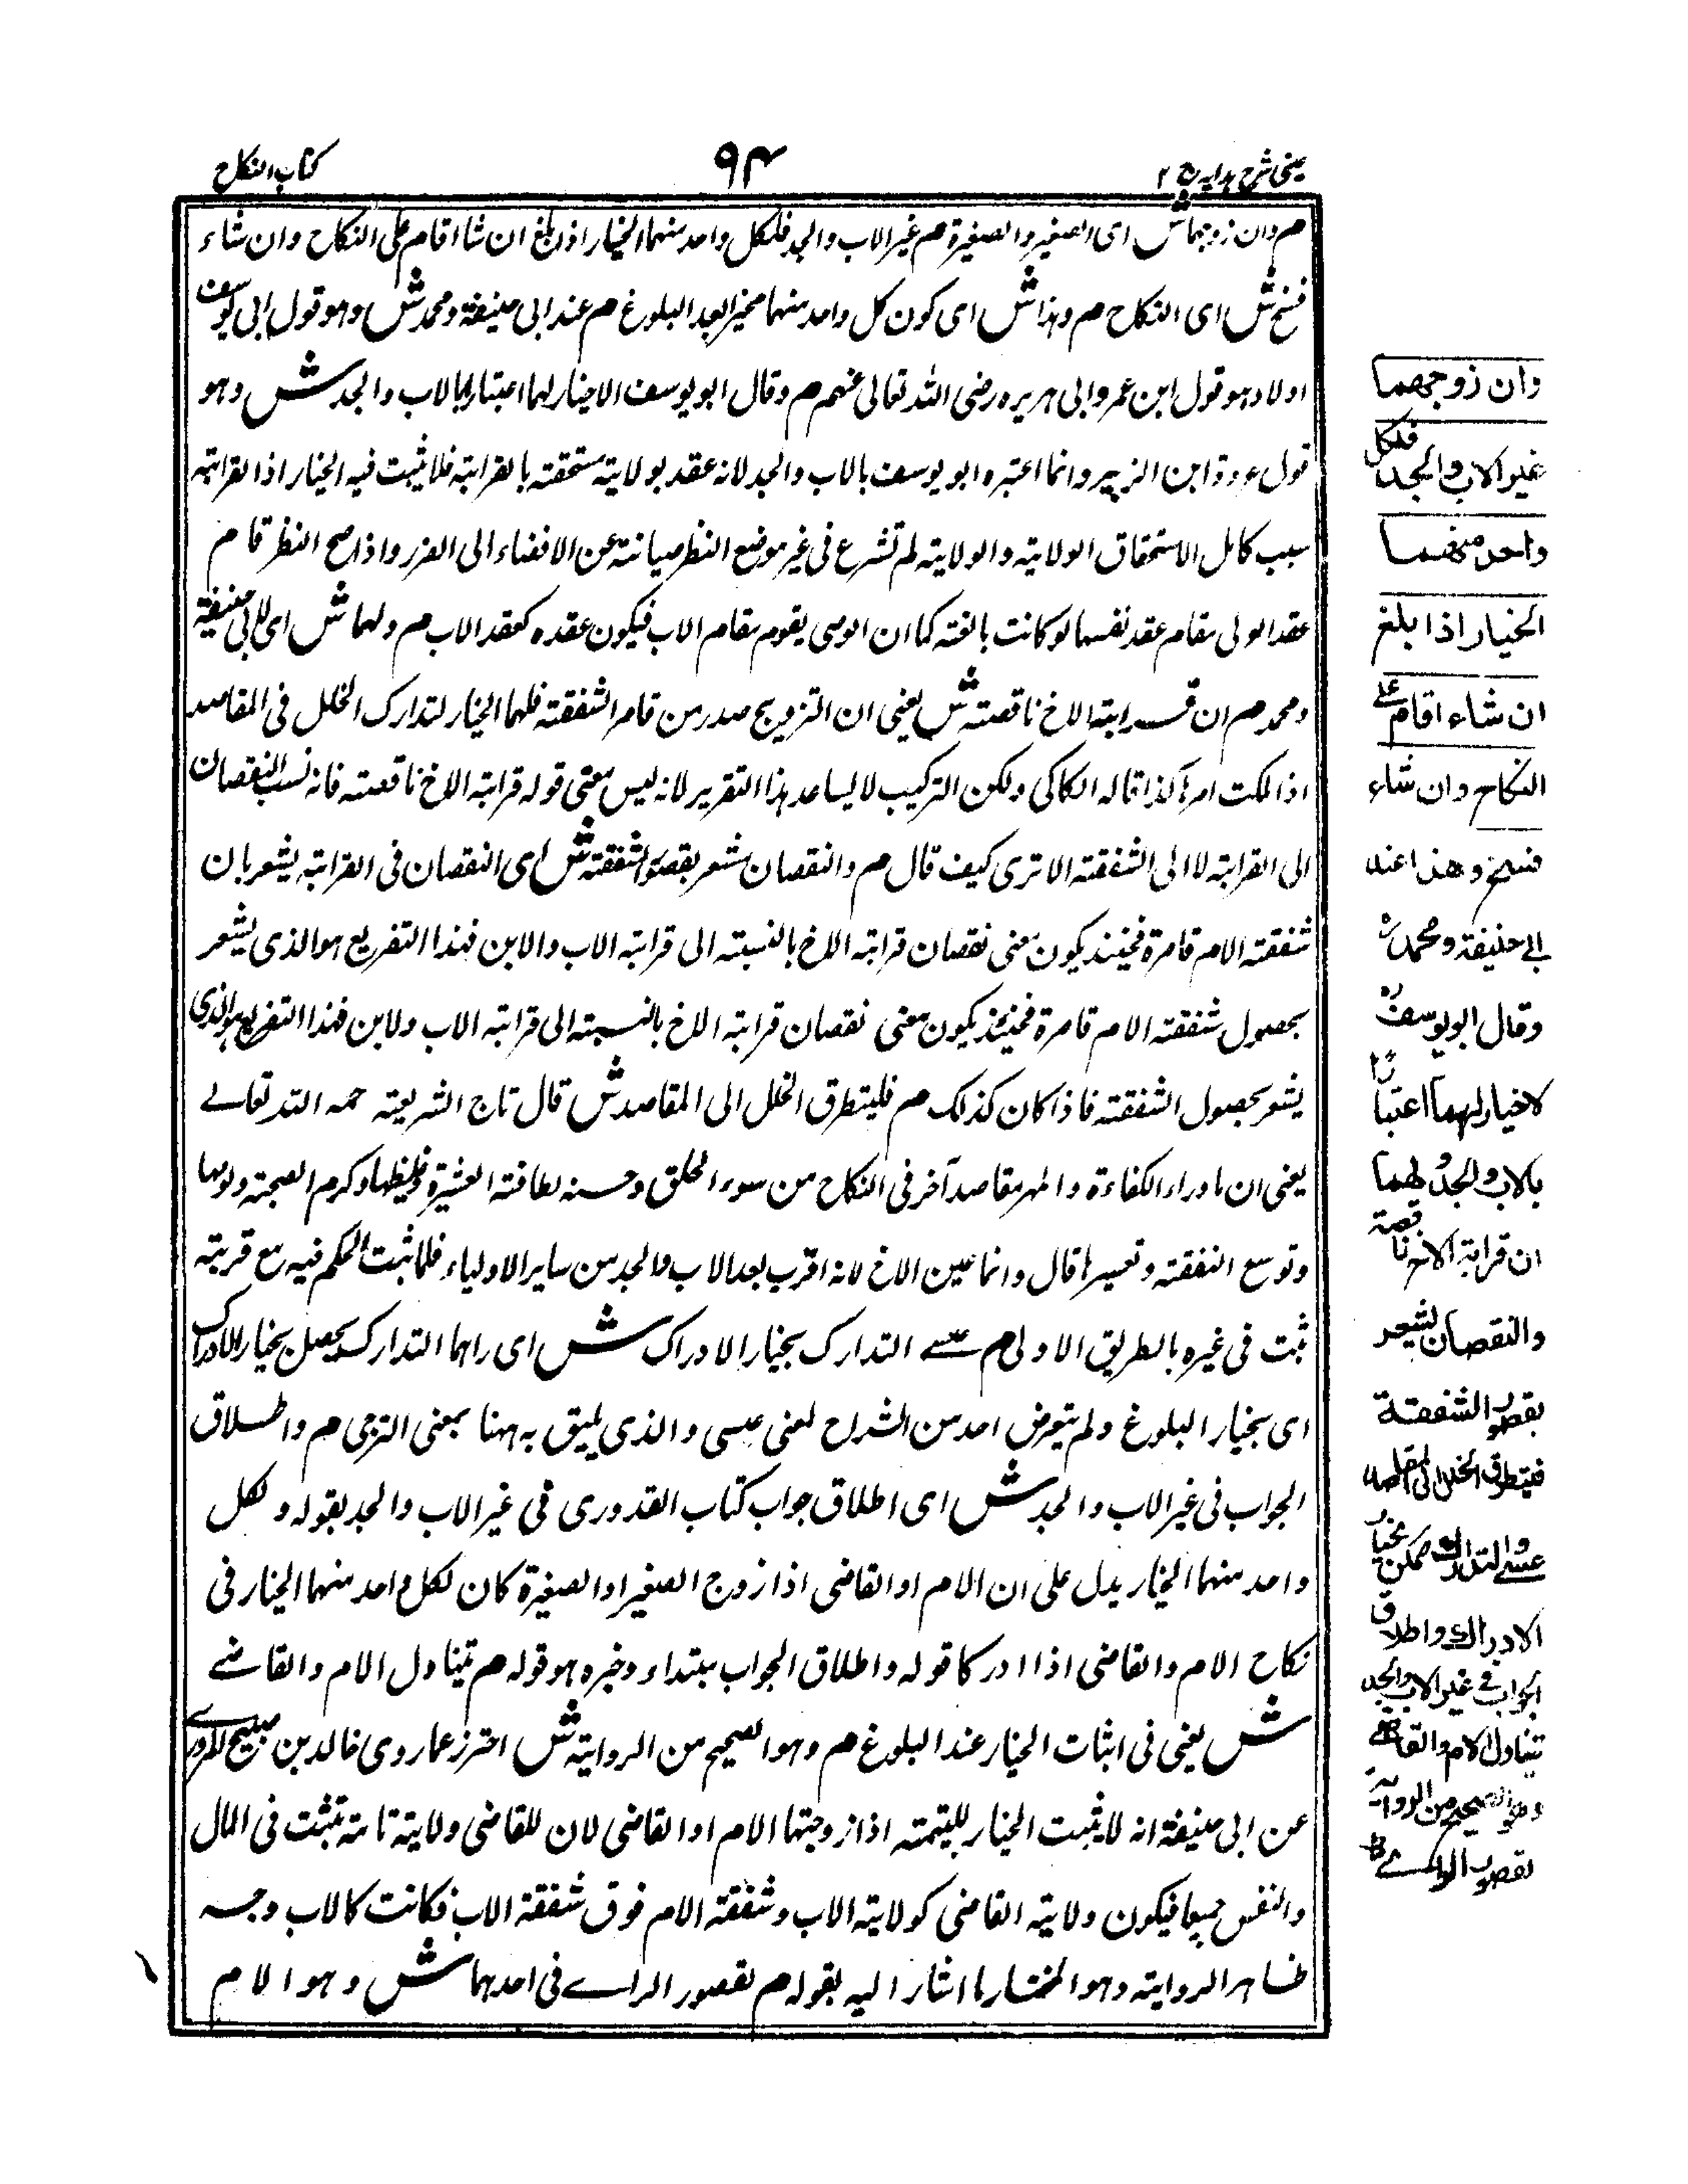 عینی شرح ہدایہ ج ۲
۹۴
کتاب النکاح
م وان زوجہما ش ای الصغیر والصغیرة م غیر الاب والجد فلکل واحد منہما الخیار اذا بلغ ان شاء اقام علی النکاح وان شاء
فسخ ش ای النکاح م وہذا ش ای کون کل واحد منہما مخیرا بعد البلوغ م عند ابی حنیفة ومحمد ش وہو قول ابی یوسف
اولا وہو قول ابن عمر وابی ہریرہ رضی اللہ تعالی عنہم م وقال ابو یوسف لاخیار لہما اعتبارا بالاب والجد ش وہو
قول عروة ابن الزبیر وانما اعتبرہ ابو یوسف بالاب والجد لانہ عقد بولایة مستحقتہ بالقرابتہ فلا یثبت فیہ الخیار اذ القرابتہ
سبب کامل لاستحقاق الولایتہ والولایتہ لم تشرع فی غیر موضع النظر صیانتہ عن الافضاء الی الضرر واذا صح النظر قام
عقد الولی مقام عقد نفسہا لو کانت بالغتہ کما ان الوصی یقوم مقام الاب فیکون عقدہ کعقد الاب م ولہما ش ای لابی حنیفة
ومحمد م ان قرابتہ الاخ ناقصتہ ش یعنی ان التزویج صدر من قاصر الشفقتہ فلہما الخیار لتدارک الخلل فی المقاصد
اذا ملکت امرہا کذا قالہ الکاکی ولکن الترکیب لا یساعد ہذا التقریر لانہ لیس معنی قولہ قرابتہ الاخ ناقصتہ فانہ نسب النقصان
الی القرابتہ لا الی الشفقتہ الا تری کیف قال م والنقصان یشعر بقصور الشفقتہ ش ای النقصان فی القرابتہ یشعر بان
شفقتہ الام قاصرة فحینئذ یکون معنی نقصان قرابتہ الاخ بالنسبتہ الی قرابتہ الاب والابن فہذا التفریع ہو الذی یشعر
بحصول شفقتہ الام قاصرة فحینئذ یکون معنی نقصان قرابتہ الاخ بالنسبتہ الی قرابتہ الاب ولابن فہذا التفریع ہو الذی
یشعر بحصول الشفقتہ فاذا کان کذلک م فلیتطرق الخلل الی المقاصد ش قال تاج الشریعتہ حمہ اللہ تعالے
یعنی ان ما وراء الکفاءة والمہر مقاصد آخر فی النکاح من سوء الخلق وحسنہ لطافتہ العشرة وغلیظہا وکرم الصحبتہ ولومہا
وتوسع النفقتہ وتعسیرہا قال وانما عین الاخ لانہ اقرب بعد الاب والجد من سایر الاولیاء فلما ثبت الحکم فیہ مع قربتہ
ثبت فی غیرہ بالطریق الاولی م عسے التدارک بخیار الادراک ش ای راہما التدارک یحصل بخیار الادراک
ای بخیار البلوغ ولم یتعرض احد من الشراح لمعنی عسی والذی یلیق بہ ہہنا بمعنی الترجی م واطلاق
الجواب فی غیر الاب والجد ش ای اطلاق جواب کتاب القدوری فی غیر الاب والجد بقولہ ولکل
واحد منہما الخیار یدل علی ان الام او القاضی اذا زوج الصغیر او الصغیرة کان لکل واحد منہما الخیار فی
نکاح الام والقاضی اذا ادرکا قولہ واطلاق الجواب مبتداء وخبرہ ہو قولہ م یتناول الام والقاضے
ش یعنی فی اثبات الخیار عند البلوغ م وہو الصحیح من الروایتہ ش احترز عما روی خالد بن صبیح المروزے
عن ابی حنیفة انہ لا یثبت الخیار للیتمتہ اذا زوجتہا الام او القاضی لان للقاضی ولایتہ تامتہ تثبت فی المال
والنفس جمیعا فیکون ولایتہ القاضی کولایتہ الاب وشفقتہ الام فوق شفقتہ الاب فکانت کالاب وجہ
ظاہر الروایتہ وہو المختار ما اشار الیہ بقولہ م لقصور الراے فی احدہما ش وہو الام
وان زوجهما
غیر الاب والجد فلکل
واحد منهما
الخیار اذا بلغ
ان شاء اقام علے
النکاح وان شاء
فسخ وهذا عند
ابی حنیفة ومحمد رہ
وقال ابو یوسف رہ
لاخیار لهما اعتبارا
بالاب والجد ولهما
ان قرابة الاخ ناقصة
والنقصان یشعر
بقصور الشفقة
فیتطرق الخلل الی المقاصد
عسے والتدارك ممکن بخیار
الادراك واطلاق
الجواب فی غیر الاب والجد
یتناول الام والقاضے
وهو الصحیح من الروایة
لقصور الراے